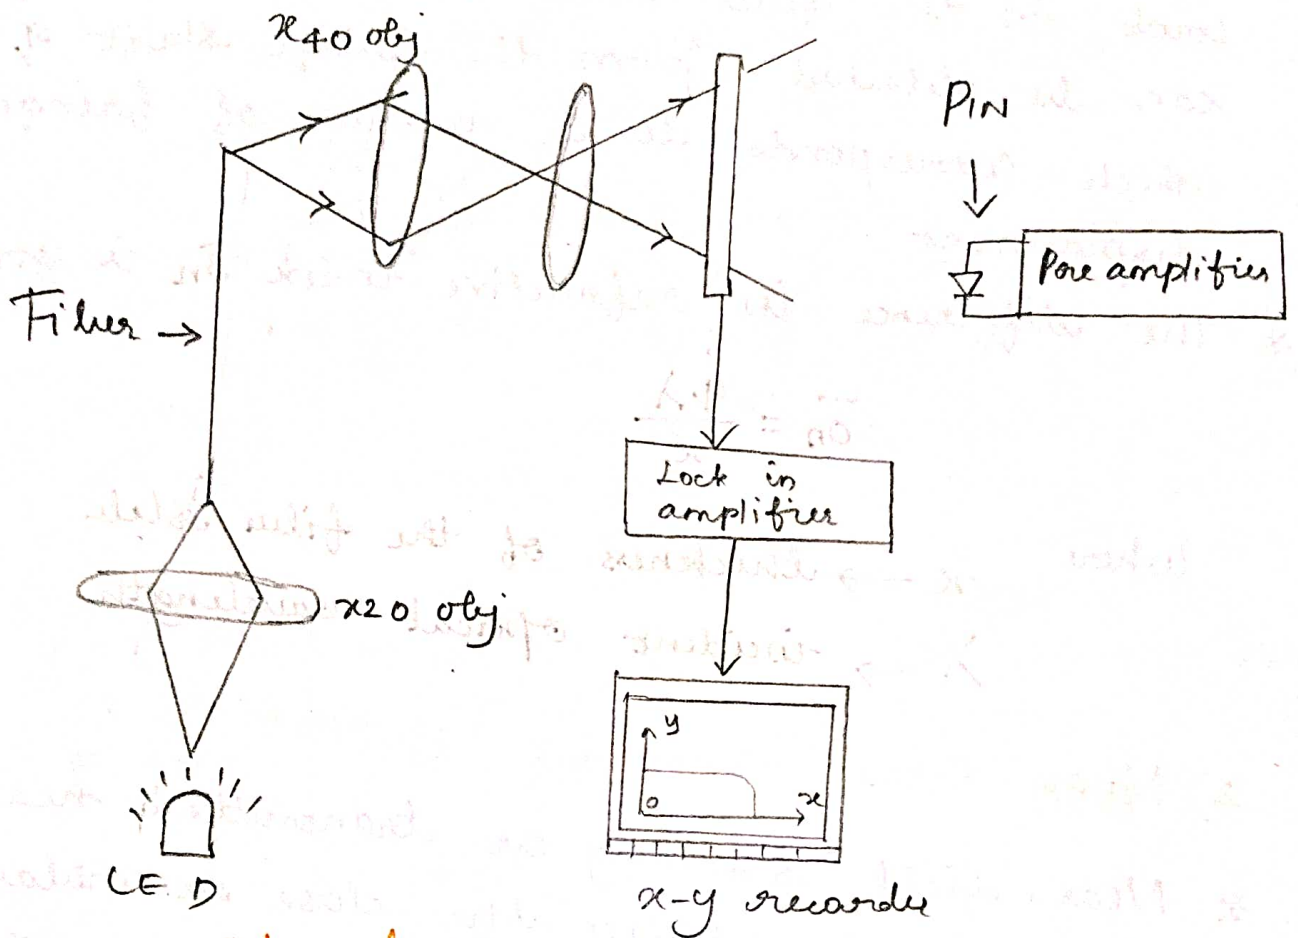 x40 obj
PIN
Pre amplifier
Fiber →
Lock in
amplifier
x20 obj
y
o
x
LED
x-y recorder